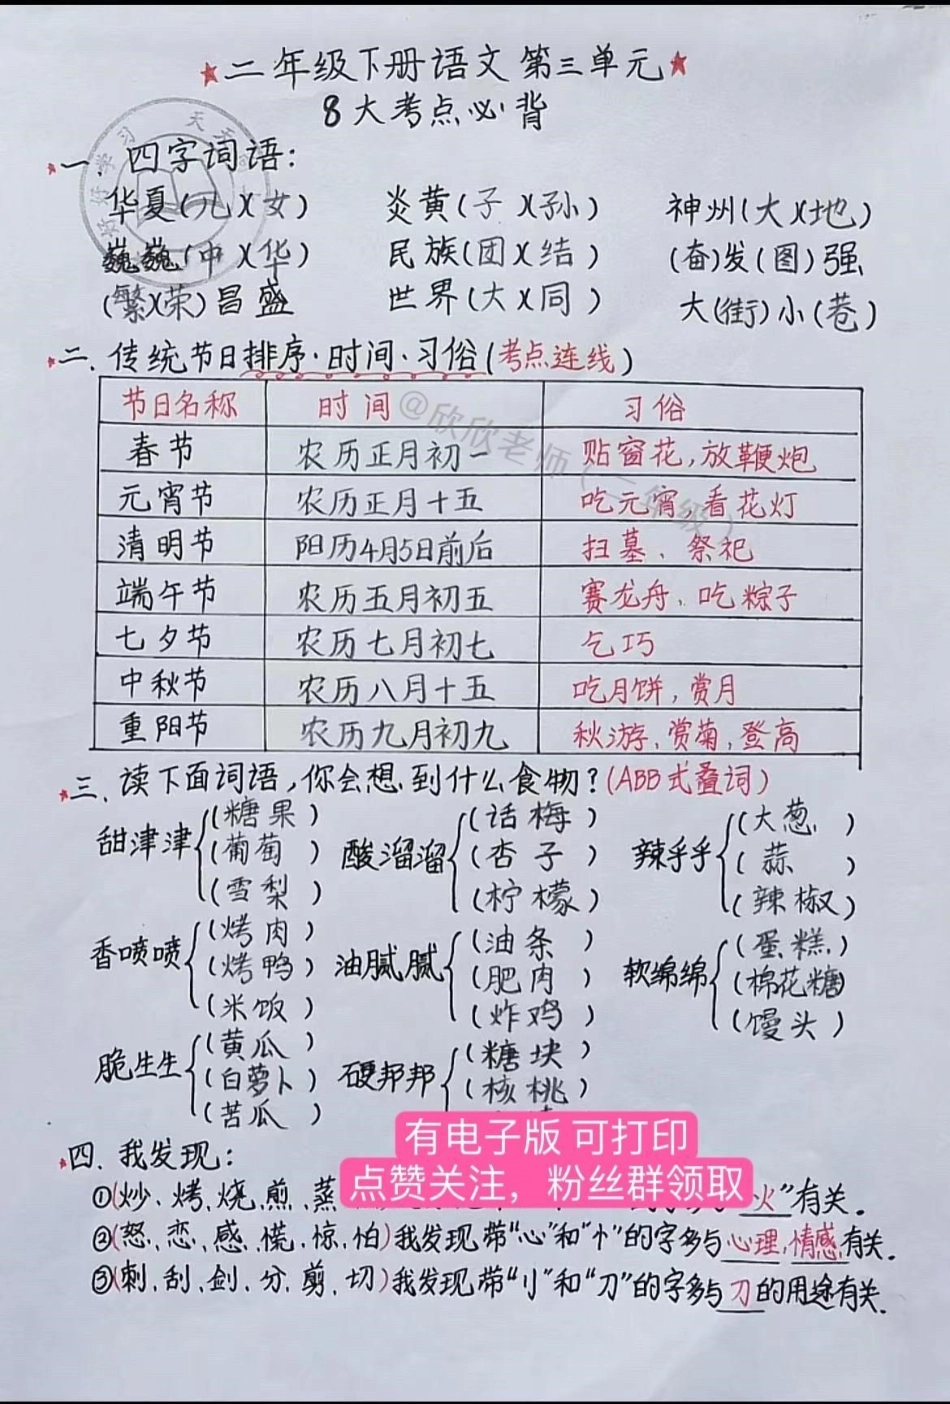 ★二年级下册语文 第三单元★
8大考点必背
★一. 四字词语:
华夏(儿)(女) 炎黄(子)(孙) 神州(大)(地)
巍巍(中)(华) 民族(团)(结) (奋)发(图)强
(繁)(荣)昌盛 世界(大)(同) 大(街)小(巷)
★二. 传统节日排序·时间·习俗(考点连线)
节日名称 时间 习俗
春节 农历正月初一 贴窗花,放鞭炮
元宵节 农历正月十五 吃元宵,看花灯
清明节 阳历4月5日前后 扫墓、祭祀
端午节 农历五月初五 赛龙舟、吃粽子
七夕节 农历七月初七 乞巧
中秋节 农历八月十五 吃月饼,赏月
重阳节 农历九月初九 秋游,赏菊,登高
@欣欣老师(二年级)
★三. 读下面词语,你会想到什么食物?(ABB式叠词)
甜津津 (糖果) (葡萄) (雪梨)
酸溜溜 (话梅) (杏子) (柠檬)
辣乎乎 (大葱) (蒜) (辣椒)
香喷喷 (烤肉) (烤鸭) (米饭)
油腻腻 (油条) (肥肉) (炸鸡)
软绵绵 (蛋糕) (棉花糖) (馒头)
脆生生 (黄瓜) (白萝卜) (苦瓜)
硬邦邦 (糖块) (核桃)
有电子版 可打印
点赞关注，粉丝群领取
★四. 我发现:
①(炒、烤、烧、煎、蒸 火"有关.
②(怒、恋、感、慌、惊、怕)我发现带"心"和"忄"的字多与心理,情感有关.
③(刺、刮、剑、分、剪、切)我发现带"刂"和"刀"的字多与刀的用途有关.